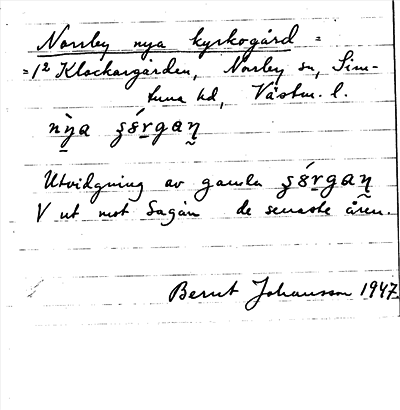 Norrby nya kyrkogård =
= 1² Klockargården, Norrby sn, Sim-
tuna hd, Västm. l.
nỳa şɞ́rgaṇ
Utvidgning av gamla şɞ́rgaṇ
V ut mot Sagån de senaste åren.
Bernt Johansson 1947.